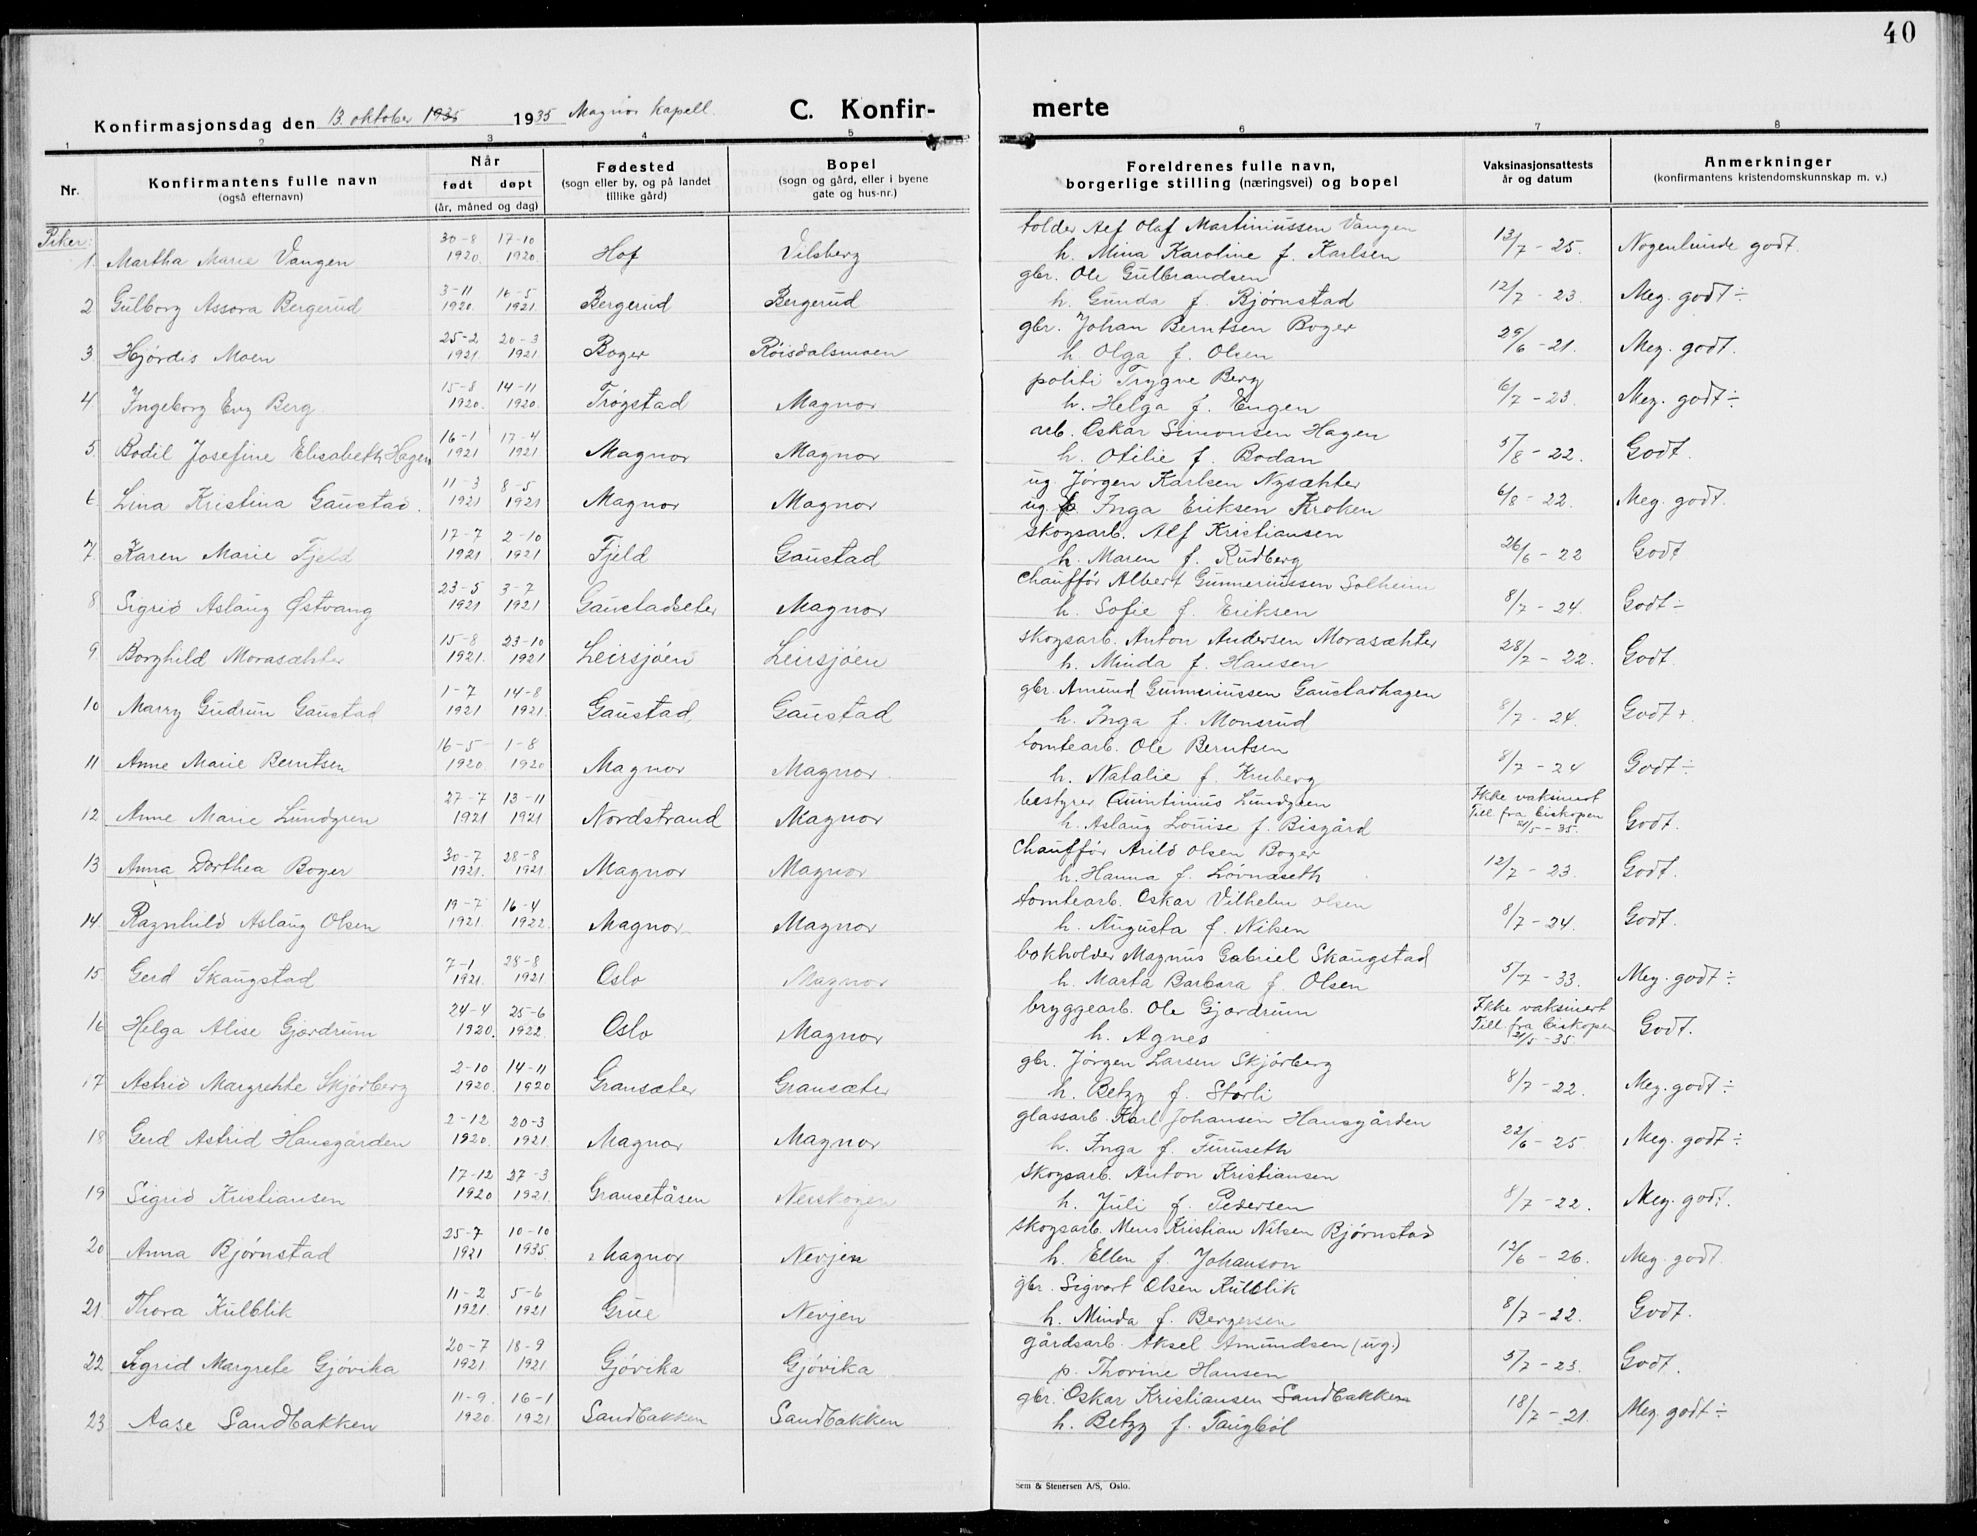 40
Konfirmasjonsdag den 13. oktober 1935 1935 Magnor Kapell.
C. Konfir-
merte
1 2 3 4 5 6 7 8
Nr.
Konfirmantens fulle navn
(også efternavn)
Når
født døpt
(år, måned og dag)
Fødested
(sogn eller by, og på landet
tillike gård)
Bopel
(sogn og gård, eller i byene
gate og hus-nr.)
Foreldrenes fulle navn,
borgerlige stilling (næringsvei) og bopel
Vaksinasjonsattests
år og datum
Anmerkninger
(konfirmantens kristendomskunnskap m. v.)
Piker:
1. Martha Marie Vangen 30-8 1920. 17-10 1920. Hof Vilsberg
tolder Alf Olaf Martiniussen Vangen
h. Mina Karoline f. Karlsen 13/7 - 25. Nogenlunde godt.
2 Gulborg Assora Bergerud 3-11 1920. 16-5 1921. Bergerud Bergerud
gbr. Ole Gulbrandsen
h. Gunda f. Bjørnstad 12/7 - 23. Meg. godt ÷
3 Hjørdis Moen 25-2 1921 20-3 1921. Boger Röisdalsmoen
gbr. Johan Berntsen Boger
h. Olga f. Olsen 29/6 - 21. Meg. godt.
4 Ingeborg Eng Berg. 15-8 1920. 14-11 1920. Trøgstad Magnor
politi Trygve Berg
h. Helga f. Engen 6/7 - 23. Meg. godt ÷
5. Bodil Josefine Elisabeth Hagen 16-1 1921 17-4 1921 Magnor Magnor
arb. Oskar Simonsen Hagen
h. Otilie f. Bodan 5/8 - 22. Godt.
6 Lina Kristina Gaustad. 11-3 1921 8-5 1921 Magnor Magnor
ug. Jørgen Karlsen Nysæhter
ug. p. Inga Eriksen Kroken 6/8 - 22. Meg. godt.
7. Karen Marie Fjeld 17-7 1921 2-10 1921 Fjeld Gaustad
skogsarb. Alf Kristiansen
h. Maren f. Rudberg 26/6 - 22 Godt
8 Sigrid Aslaug Østvang 23-5 1921 3-7 1921 Gaustadseter Magnor
Chauffør Albert Gunneriussen Solheim
h. Sofie f. Eriksen 8/7 - 24. Godt ÷
9 Borghild Morasæhter 15-8 1921. 23-10 1921 Leirsjøen Leirsjøen
skogsarb. Anton Andersen Morasæhter
h. Minda f. Hansen 28/7 - 22. Godt.
10 Marry Gudrun Gaustad 1-7 1921 14-8 1921. Gaustad Gaustad
gbr. Amund Gunneriussen Gaustadhagen
h. Inga f. Monsrud 8/7 - 24. Godt +.
11 Anne Marie Berntsen 16-5 1920. 1-8 1920 Magnor Magnor.
tomtearb. Ole Berntsen
h. Natalie f. Kruberg 8/7 - 24 Godt ÷
12 Anne Marie Lundgren 27-7 1921 13-11 1921 Nordstrand Magnor
bestyrer Quintinius Lundgren
h. Aslaug Louise f. Bisgård Ikke vaksinert Till fra biskopen 21/5 - 35. Godt.
13 Anna Dorthea Boger 30-7 1921. 28-8 1921 Magnor Magnor
Chauffør Arild Olsen Boger
h. Hanna f. Løvnæseth 12/7 - 23. Godt.
14. Ragnhild Aslaug Olsen 19-7 1921. 16-4 1922. Magnor Magnor
tomtearb. Oskar Vilhelm Olsen
h. Augusta f. Nilsen 8/7 - 24. Godt.
15. Gerd Skaugstad 7-1 1921. 28-8 1921 Oslo Magnor
bokholder Magnus Gabriel Skaugstad
h. Marta Barbara f. Olsen 5/7 - 33. Meg. godt ÷
16 Helga Alise Gjærdrum 24-4 1920. 25-6 1922. Oslo Magnor
bryggearb. Ole Gjærdrum
h. Agnes Ikke vaksinert Till. fra biskopen 21/5 - 35. Godt.
17 Astrid Margrehte Skjørberg 2-10 1920. 14-11 1920 Gransæter Gransæter
gbr. Jørgen Larsen Skjørberg
h. Betzy f. Størli 8/7 - 22. Meg. godt ÷
18 Gerd Astrid Hansgården 2-12 1920. 20-3 1921. Magnor Magnor
glassarb. Karl Johansen Hansgården
h. Inga f. Furuseth 22/6 - 25 Meg. godt ÷
19 Sigrid Kristiansen 17-12 1920 27-3 1921. Gransetåsen Neiskogen
skogsarb. Anton Kristiansen
h. Juli f. Pedersen 8/7 - 22. Meg. godt.
20 Anna Bjørnstad 25-7 1921 10-10 1935 Magnor Nevjen
skogsarb. Mens Kristian Nilsen Bjørnstad
h. Ellen f. Johanson 12/6 - 26. Meg. godt
21. Thora Kulblik 11-2 1921. 5-6 1921 Grue Nevjen
gbr. Sigvart Olsen Kulblik
h. Minda f. Bergersen 8/7 - 22. Godt.
22 Sigrid Margrete Gjøvika 20-7 1921. 18-9 1921. Gjøvika Gjøvika
gårdsarb. Aksel Amundsen (ug.)
p. Thorine Hansen 5/7 - 23. Godt.
23 Aase Sandbakken 11-9. 1920. 16-1 1921 Sandbakken Sandbakken
gbr. Oskar Kristiansen Sandbakken
h. Betzy f. Taugbøl 18/7 - 21. Meg. godt ÷
Sem & Stenersen A/S, Oslo.